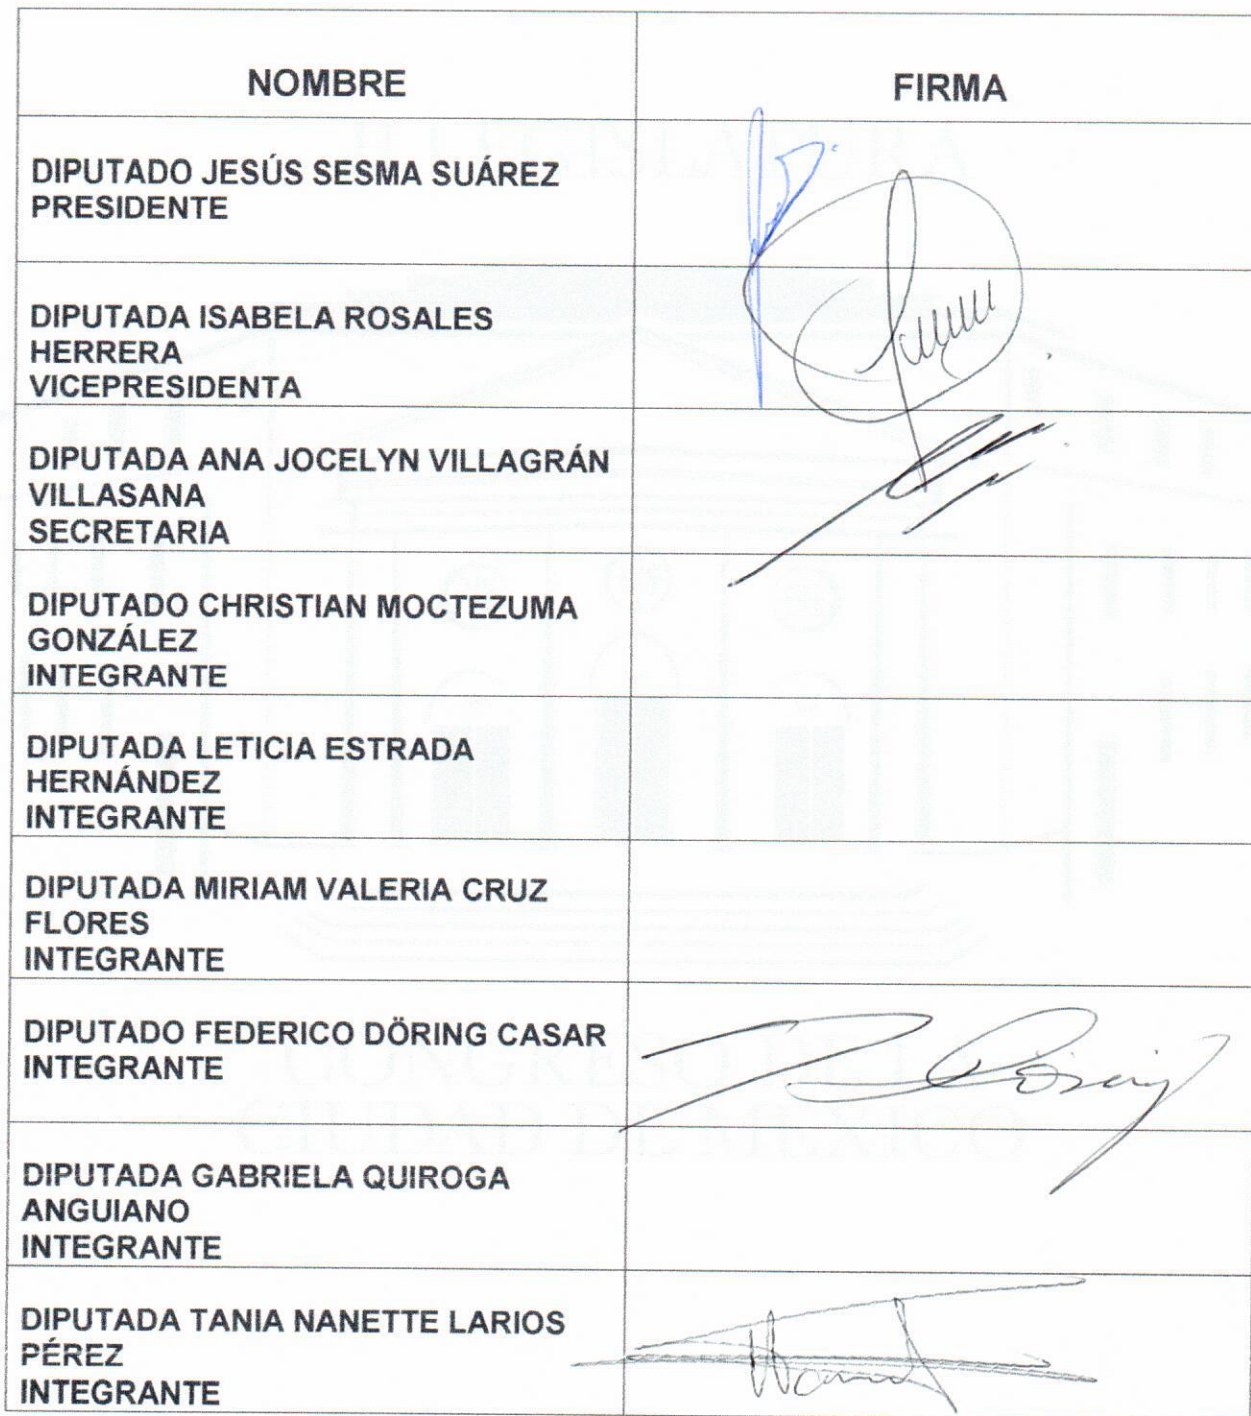 NOMBRE
FIRMA
DIPUTADO JESÚS SESMA SUÁREZ
PRESIDENTE
DIPUTADA ISABELA ROSALES
HERRERA
VICEPRESIDENTA
DIPUTADA ANA JOCELYN VILLAGRÁN
VILLASANA
SECRETARIA
DIPUTADO CHRISTIAN MOCTEZUMA
GONZÁLEZ
INTEGRANTE
DIPUTADA LETICIA ESTRADA
HERNÁNDEZ
INTEGRANTE
DIPUTADA MIRIAM VALERIA CRUZ
FLORES
INTEGRANTE
DIPUTADO FEDERICO DÖRING CASAR
INTEGRANTE
DIPUTADA GABRIELA QUIROGA
ANGUIANO
INTEGRANTE
DIPUTADA TANIA NANETTE LARIOS
PÉREZ
INTEGRANTE
CONGRESO DE LA
CIUDAD DE MÉXICO